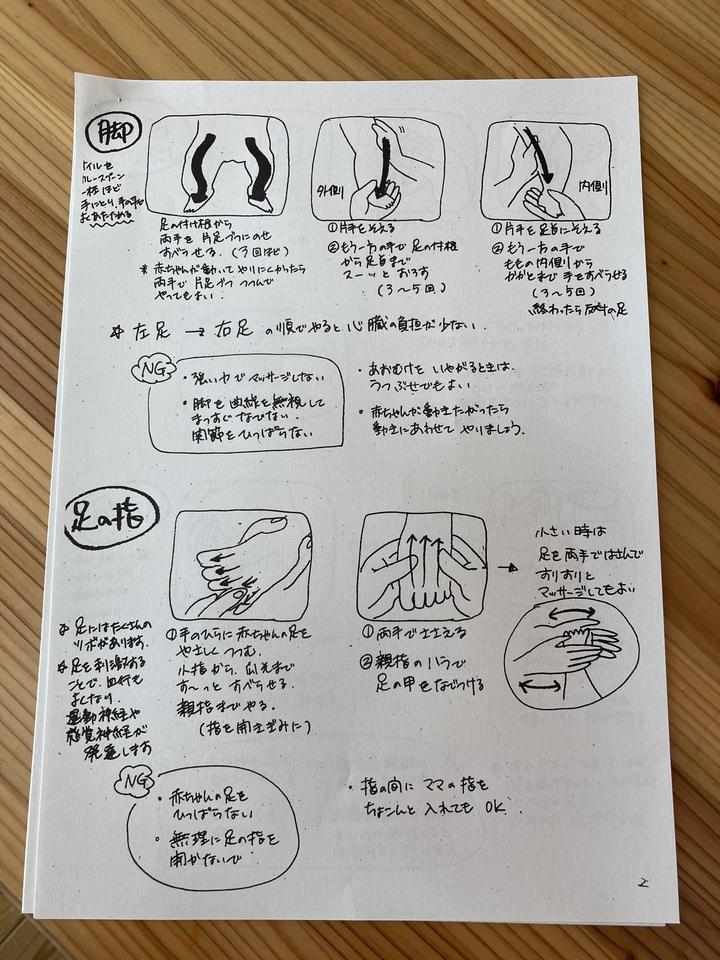 脚
オイルを
ティースプーン
一杯ほど
手にとり、手の平で
よくあたためる
足の付け根から
両手を片足づつにのせ
すべらせる。(3回ほど)
* 赤ちゃんが動いてやりにくかったら
両手で片足づつつつんで
やってもよい。
外側
①片手をそえる
②もう一方の手で足の付根
から足首まで
スーッとおろす
(3〜5回)
内側
①片手を足首にそえる
②もう一方の手で
ももの内側から
かかとまで手をすべらせる
(3〜5回)
終わったら反対の足
☆ 左足 → 右足 の順でやると心臓の負担が少ない.
NG
・強い力でマッサージしない
・脚を曲線を無視して
まっすぐなでない.
関節をひっぱらない
・あおむけをいやがるときは.
うつぶせでもよい.
・赤ちゃんが動きたがったら
動きにあわせてやりましょう.
足の指
☆ 足にはたくさんの
ツボがあります.
☆ 足を刺激する
ことで、血行も
よくなり.
運動神経や
感覚神経が
発達します
①手のひらに赤ちゃんの足を
やさしくつつむ.
小指から、爪先まで
す〜っとすべらせる.
親指までやる.
(指を開きぎみに)
①両手でささえる
②親指のハラで
足の甲をなでつける
→
小さい時は
足を両手ではさんで
すりすりと
マッサージしてもよい
NG
・赤ちゃんの足を
ひっぱらない
・無理に足の指を
開かないで
・指の間にママの指を
ちょこんと入れてもOK.
2